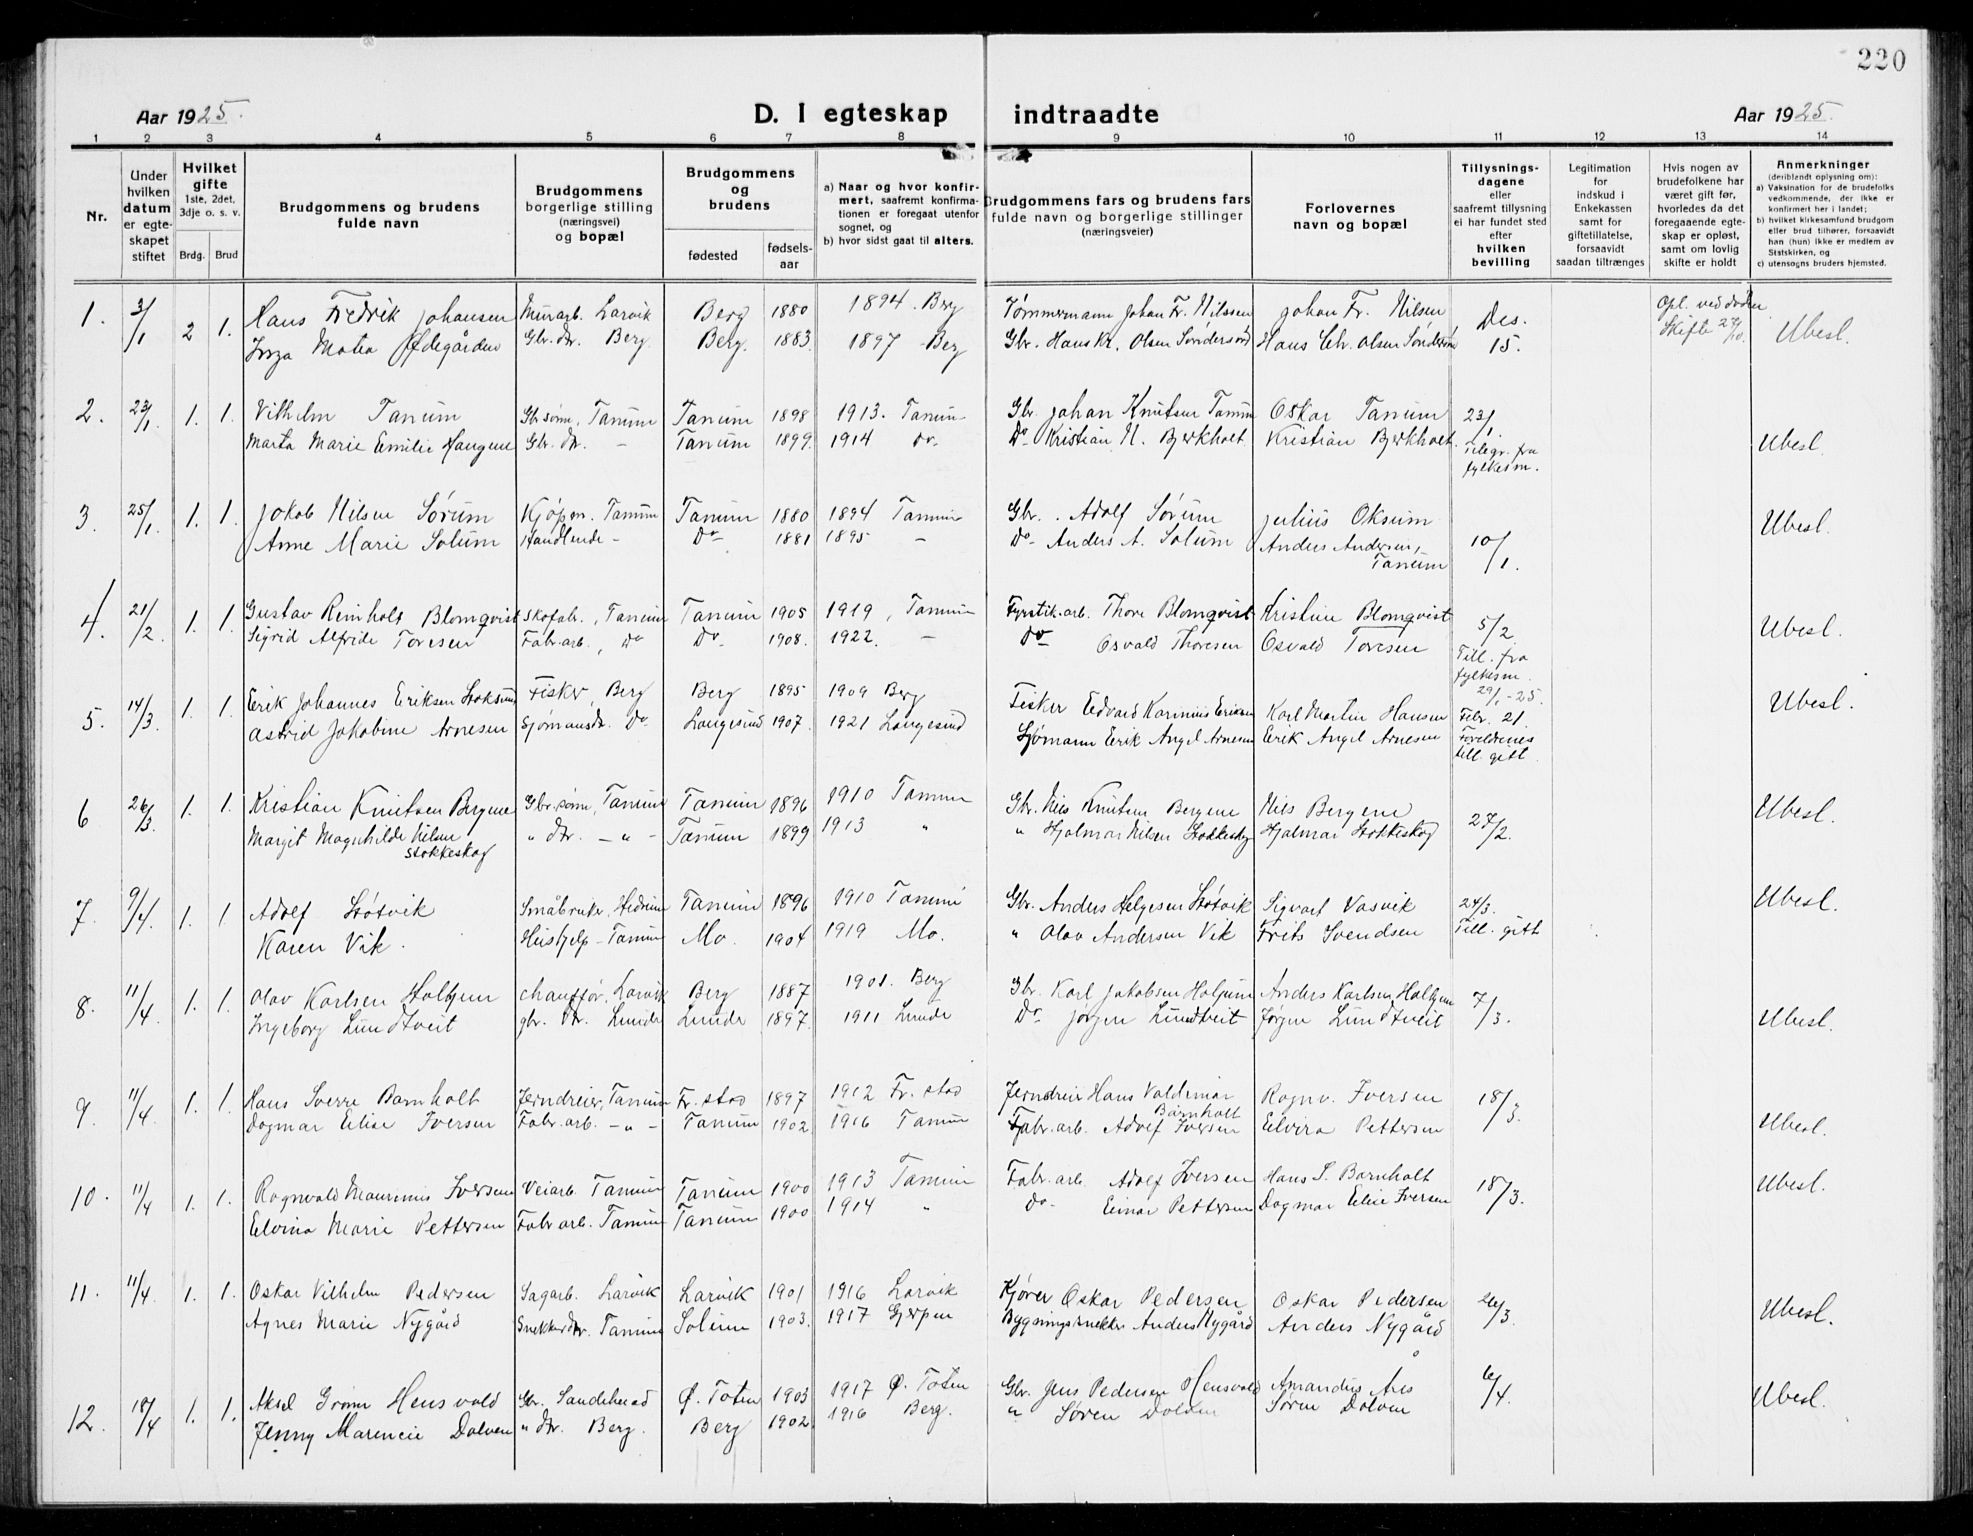 220
Aar 1925.
D. I egteskap indtraadte
Aar 1925.
1 2 3 4 5 6 7 8 9 10 11 12 13 14
Nr.
Under hvilken datum er egteskapet stiftet
Hvilket gifte 1ste, 2det, 3dje o. s. v.
Brdg. Brud
Brudgommens og brudens fulde navn
Brudgommens borgerlige stilling (næringsvei) og bopæl
Brudgommens og brudens
fødested
fødselsaar
a) Naar og hvor konfirmert, saafremt konfirmationen er foregaat utenfor sognet, og
b) hvor sidst gaat til alters.
Brudgommens fars og brudens fars fulde navn og borgerlige stillinger (næringsveier)
Forlovernes navn og bopæl
Tillysningsdagene eller saafremt tillysning ei har fundet sted efter hvilken bevilling
Legitimation for indskud i Enkekassen samt for giftetillatelse, forsaavidt saadan tiltrænges
Hvis nogen av brudefolkene har været gift før, hvorledes da det foregaaende egteskap er opløst, samt om lovlig skifte er holdt
Anmerkninger (deriblandt oplysning om):
a) Vaksination for de brudefolks vedkommende, der ikke er konfirmert her i landet;
b) hvilket kirkesamfund brudgom eller brud tilhører, forsaavidt han (hun) ikke er medlem av Statskirken, og
c) utensogns bruders hjemsted.
1. 3/1 2 1. Hans Fredrik Johansen Murarb. Larvik Berg 1880 1894. Berg Tømmermann Johan Fr. Nilssen Johan Fr. Nilsen Des. 15. Opl. ved døden Skifte Ubesl.
Inga Matea Ødegården Gbr. dr. Berg Berg. 1883 1897 Berg Gbr. Hans Kr. Olsen Søndersød Hans Chr. Olsen
2. 23/1. 1. 1. Vilhelm Tanum Gb. sønn, Tanum Tanum 1898 1913. Tanum Gbr. Johan Knutsen Tanum Oskar Tanum 23/1.
Marta Marie Emilie Haugene Gbr. dr. - Tanum 1899. 1914 do. Do Kristian N. Bjerkholt Kristian Bjerkholt. Telegr. fra fylkesm. Ubesl.
3. 25/1. 1. 1. Jakob Nilsen Sørum Kjøpm. Tanum Tanum 1880 1894 Tanum Gbr. Adolf Sørum Julius Oksum Ubesl.
Anne Marie Solum Handlende - Do 1881 1895 - Do Anders A. Solum Anders Andersen, Tanum 10/1.
4. 21/2 1. 1. Gustav Reinholt Blomqvist Skofab., Tanum Tanum 1905 1919, Tanum Fyrstik.arb. Thore Blomqvist Kristine Blomqvist 5/2
Sigrid Alfride Toresen Fabr.arb., do Do. 1908. 1922. - do Osvald Thoresen Osvald Toresen Till. fra fylkesm. 29/1.-25. Ubesl.
5. 14/3. 1. 1. Erik Johannes Eriksen Fisker, Berg Berg 1895 1909 Berg Fisker Edvard Karinius Eriksen Karl Martin Hansen Febr. 21. Ubesl.
Astrid Jakobine Arnesen Sjømansdr. do Langesund 1907. 1921 Langesund Sjømann Eerik Angel Arnesen Eerik Angel Arnesen Foreldrenes till. gitt
6 26/3. 1. 1. Kristian Knutsen Bergene Gbr. sønn, Tanum Tanum 1896 1910 Tanum Gbr. Nils Knutsen Bergene Nils Bergene 27/2. Ubesl.
Margit Magnhilde Nilsen Stokkeskog " dtr. - " - Tanum 1899 1913 " " Hjalmar Nilsen Stokkeskog Hjalmar Stokkeskog
7. 9/4. 1. 1. Adolf Støtvik Småbruker, Hedrum Tanum 1896 1910 Tanum Gbr. Anders Helgesen Støtvik Sigvart Vasvik 24/3. Ubesl.
Karen Vik. Hushjelp - Tanum Mo. 1904 1919 Mo. " Olav Andersen Vik Frits Svendsen Till. gitt
8. 11/4. 1. 1. Olav Karlsen Holhjem Chauffør, Larvik Berg 1887 1901. Berg Gbr. Karl Jakobsen Anders Karlsen 7/3.
Ingeborg Lundtveit gbr. dr. Lunde Lunde 1897. 1911 Lunde Do Jørgen Lundtveit Jørgen Lundtveit Ubesl.
9. 11/4. 1. 1. Hans Sverre Barnholt Jerndreier, Tanum Fr. stad 1897 1912 Fr. stad Jerndreier Hans Valdemar Barnholt Ragnv. Iversen 18/3.
Dagmar Elise Iversen Fabr. arb. - " - Tanum 1902 1916 Tanum Fabr. arb. Adolf Iversen Eelvira Pettersen Ubesl.
10. 11/4 1. 1. Ragnvald Maurinius Iversen Veiarb. Tanum Tanum 1900 1913 Tanum Fabr. arb. Adolf Iversen Hans S. Barnholt 18/3. Ubesl.
Eelvina Marie Pettersen Fabr arb. Tanum Tanum 1900 1914 " do. Einar Pettersen Dagmar Elise Iversen
11. 11/4. 1. 1. Oskar Vilhelm Pedersen Sagarb. Larvik Larvik 1901 1916 Larvik Kjører Oskar Pedersen Oskar Pedersen 26/3. Ubesl.
Agnes Marie Nygård Snekkerdtr. Tanum Solum 1903. 1917 Gjerpen Bygningssnekker Anders Nygård Anders Nygård
12. 18/4 1. 1. Aksel Grønn Hensvold Gbr. Sandeherad Ø. Toten 1903 1917 Ø. Toten Gbr. Jens Pedersen Hensvold Amandus Ås 6/4. Ubesl.
Jenny Marencie Dolven " dtr. Berg. Berg 1902. 1916 Berg. " Søren Dolven Søren Dolven